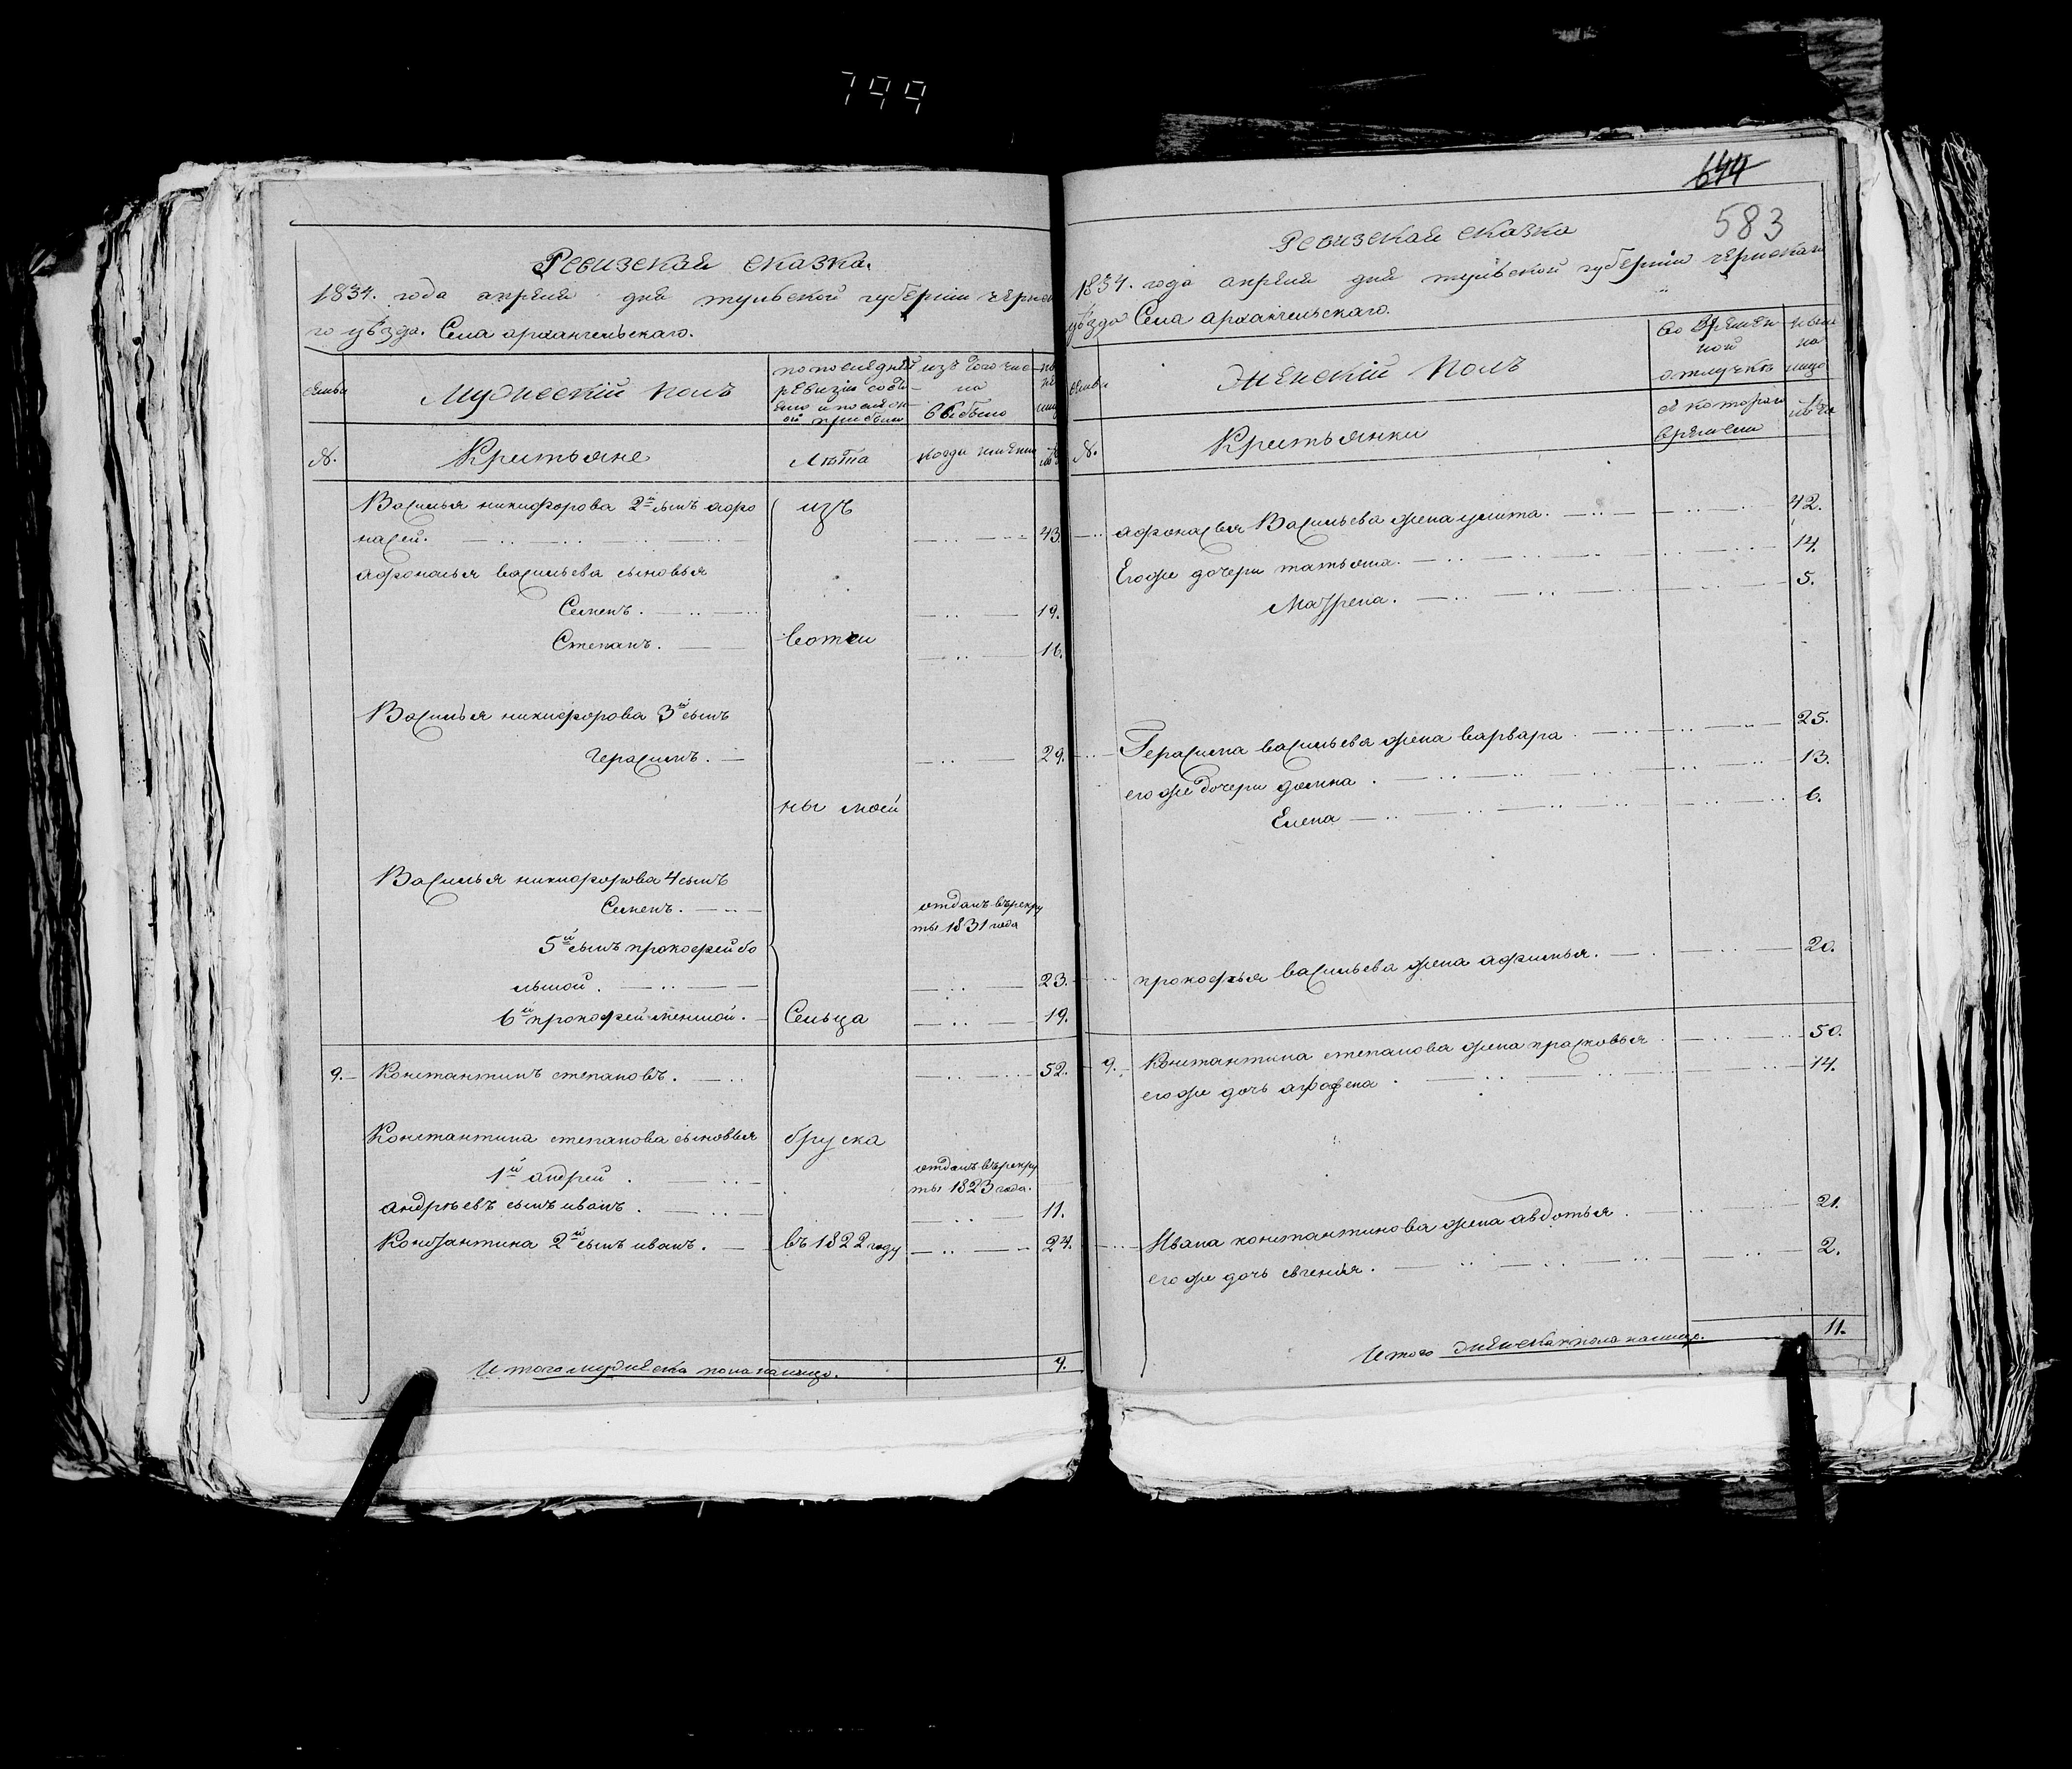 799
Ревизская сказка.
1834. года апреля дня тульской губернiи чернск
го уѣзда. Села архангельскаго.
семьи
Мужескiй полъ
по последней
ревизiи состо
яло и после он
ой прибыло
изъ того чис
ла
выбыло
№.
Крестьяне
Лѣта
когда имянно
Василья никифорова 2й сынъ афо
насей.
изъ
43.
афонасья васильева сыновья
Семенъ.
19.
Степанъ.
вотчи
16.
Василья никифорова 3й сынъ
Герасимъ.
29.
ны моей
Василья никифорова 4 сынъ
Семенъ.
отданъ въ рекру
ты 1831 года
5й сынъ прокофей бо
льшой.
23.
6й прокофей меншой.
Сельца
19.
9.
Константинъ степановъ.
52.
Константина степанова сыновья
бруска
1й андрей.
отданъ въ рекру
ты 1823 года.
андреевъ сынъ иванъ.
11.
Константина 2й сынъ иванъ.
въ 1822 году
24.
Итого мужеска пола налицо.
9.
644
583
Ревизская сказка
1834. года апреля дня тульской губернiи чернскаго
уѣзда Села архангельскаго.
семьи
Женскiй полъ
Во времен
ной
отлучке
ныне
на
лицо
№.
Крестьянки
съ котораго
времени
лѣта
афонасья Васильева жена улита.
42.
Егоже дочери татьяна.
14.
Мавренa.
5.
Герасима васильева жена варвара
25.
егоже дочери домна
13.
Елена
6.
прокофья васильева жена афимья.
20.
9.
Константина степанова жена прасковья
50.
егоже дочь аграфена
14.
Ивана константинова жена авдотья.
21.
егоже дочь евгения.
2.
Итого женска пола налицо.
11.